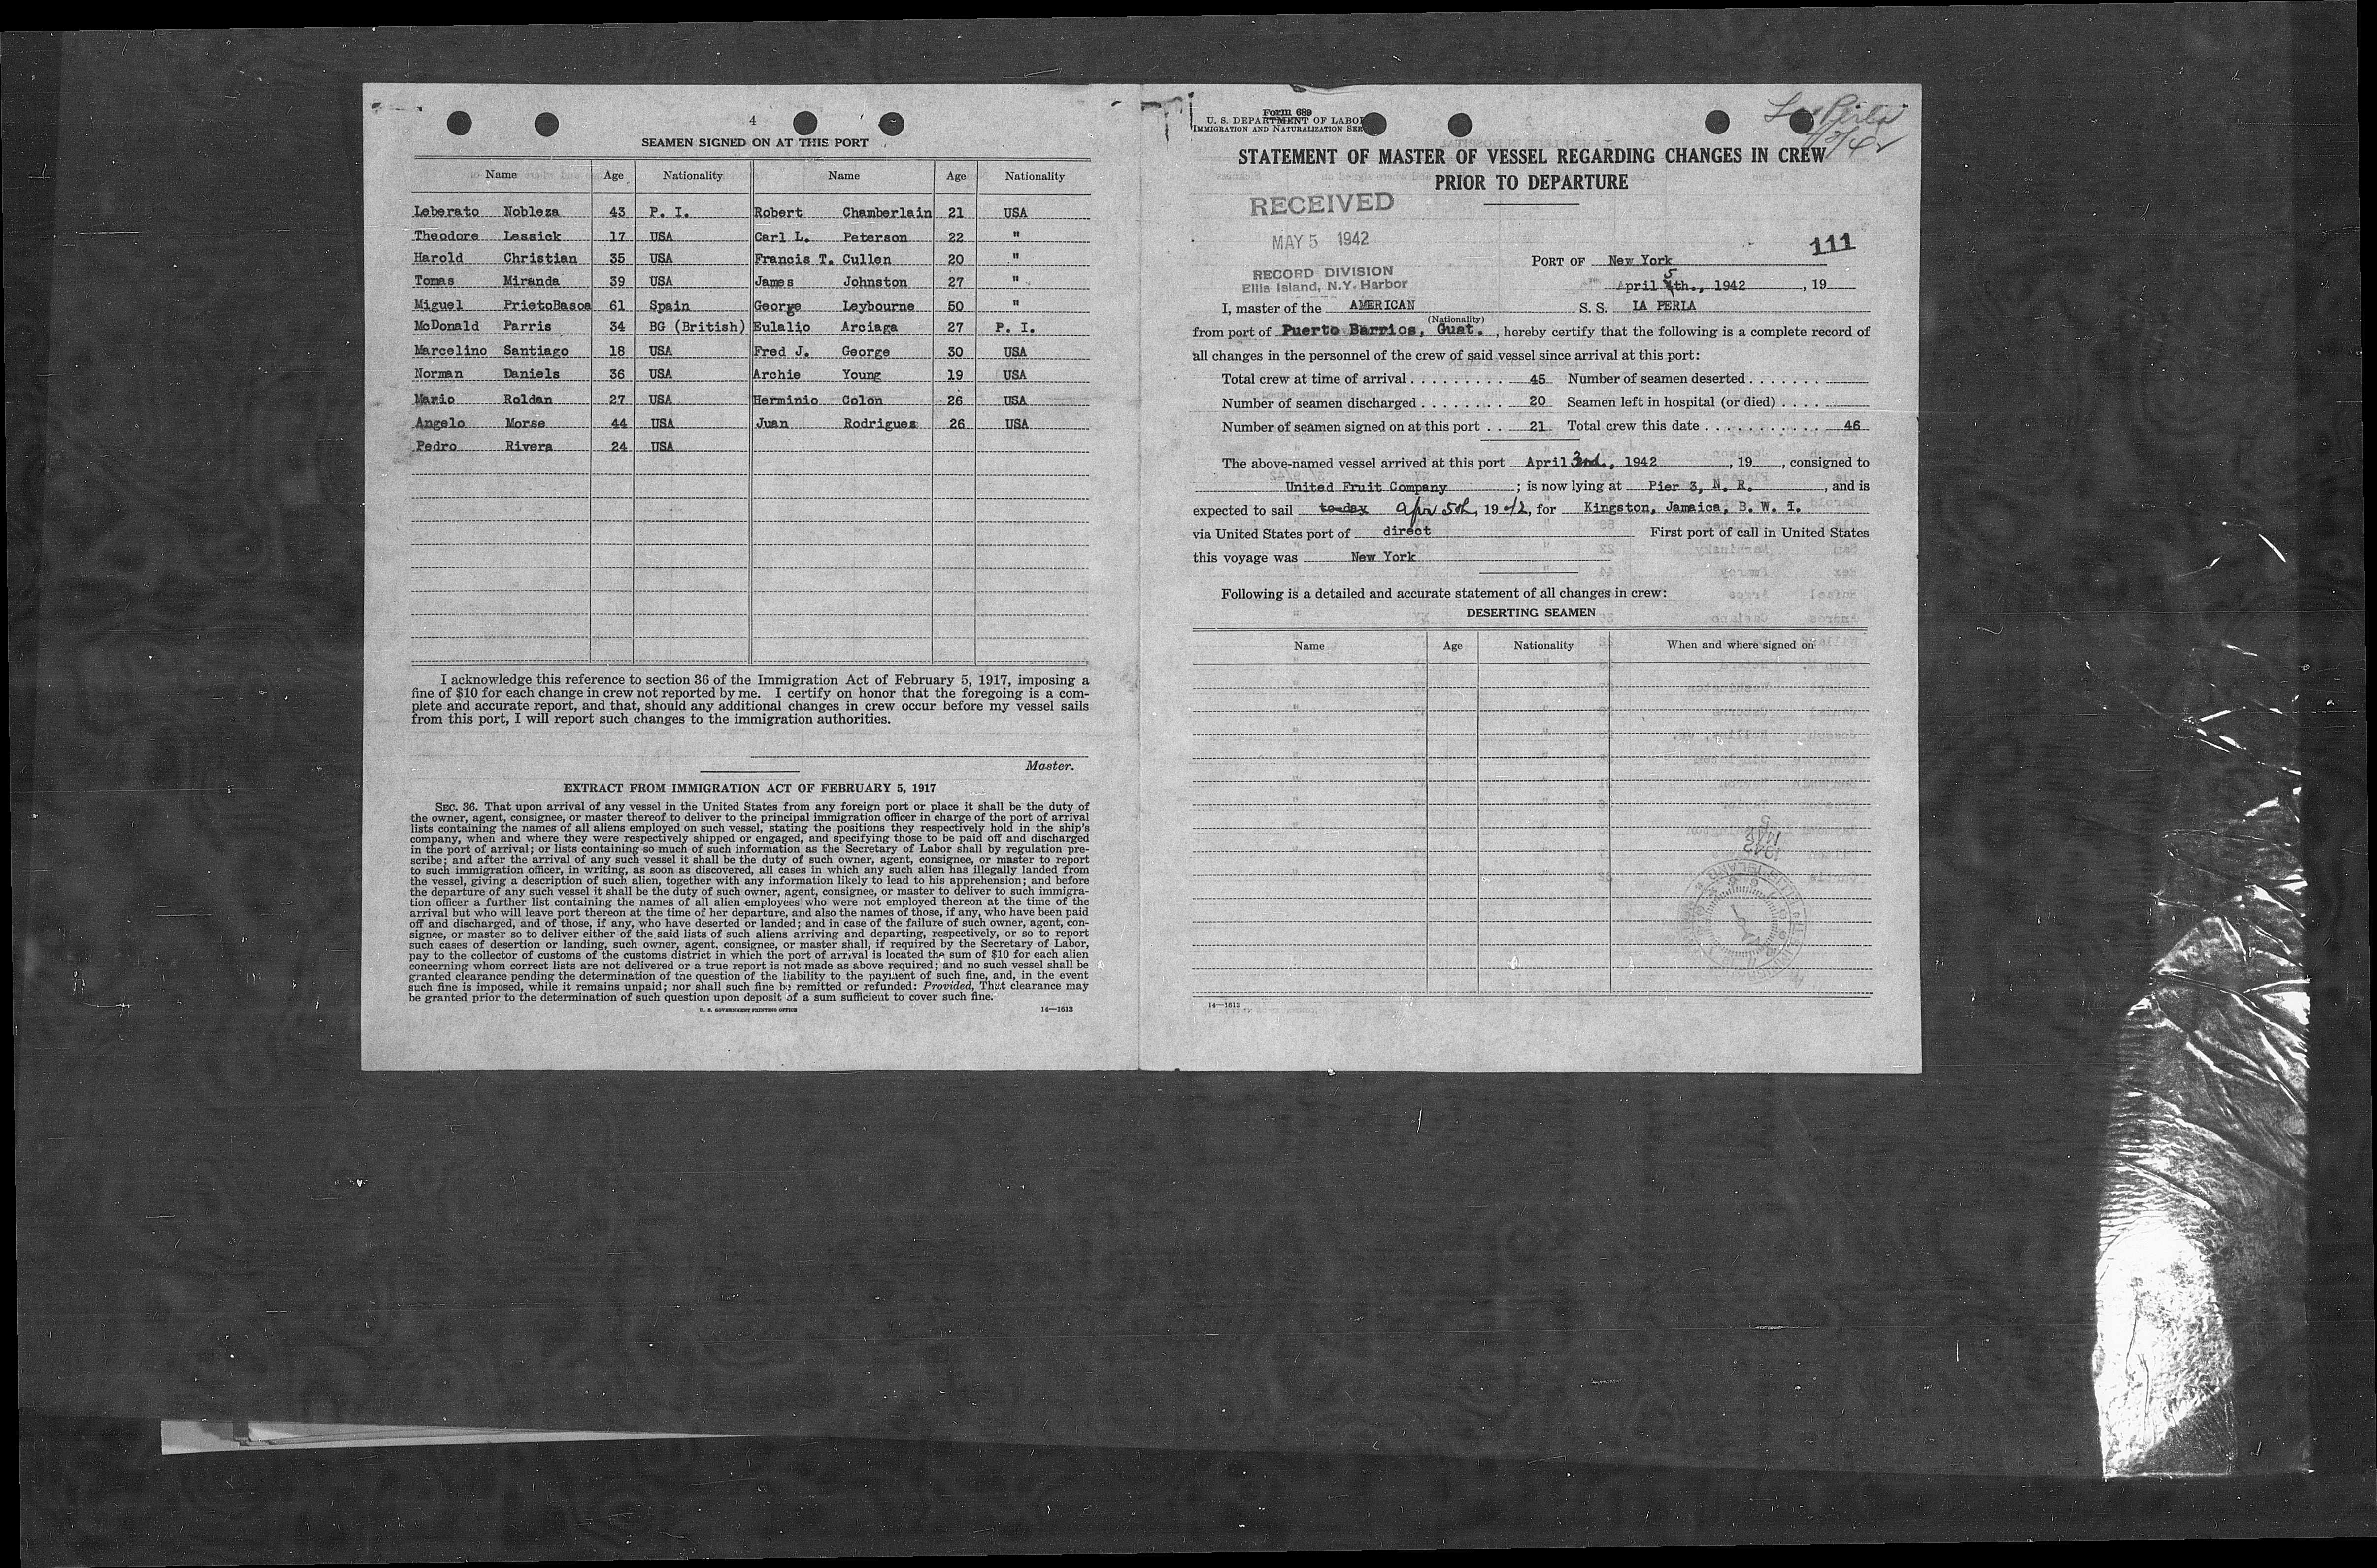 4
SEAMEN SIGNED ON AT THIS PORT
Name Age Nationality Name Age Nationality
Leberato Nobleza 43 P. I. Robert Chamberlain 21 USA
Theodore Lessick 17 USA Carl L. Peterson 22 "
Harold Christian 35 USA Francis T. Cullen 20 "
Tomas Miranda 39 USA James Johnston 27 "
Miguel PrietoBasoa 61 Spain George Leybourne 50 "
McDonald Parris 34 BG (British) Eulalio Arciaga 27 P. I.
Marcelino Santiago 18 USA Fred J. George 30 USA
Norman Daniels 36 USA Archie Young 19 USA
Mario Roldan 27 USA Herminio Colon 26 USA
Angelo Morse 44 USA Juan Rodrigues 26 USA
Pedro Rivera 24 USA
I acknowledge this reference to section 36 of the Immigration Act of February 5, 1917, imposing a
fine of $10 for each change in crew not reported by me. I certify on honor that the foregoing is a com-
plete and accurate report, and that, should any additional changes in crew occur before my vessel sails
from this port, I will report such changes to the immigration authorities.
Master.
EXTRACT FROM IMMIGRATION ACT OF FEBRUARY 5, 1917
SEC. 36. That upon arrival of any vessel in the United States from any foreign port or place it shall be the duty of
the owner, agent, consignee, or master thereof to deliver to the principal immigration officer in charge of the port of arrival
lists containing the names of all aliens employed on such vessel, stating the positions they respectively hold in the ship's
company, when and where they were respectively shipped or engaged, and specifying those to be paid off and discharged
in the port of arrival; or lists containing so much of such information as the Secretary of Labor shall by regulation pre-
scribe; and after the arrival of any such vessel it shall be the duty of such owner, agent, consignee, or master to report
to such immigration officer, in writing, as soon as discovered, all cases in which any such alien has illegally landed from
the vessel, giving a description of such alien, together with any information likely to lead to his apprehension; and before
the departure of any such vessel it shall be the duty of such owner, agent, consignee, or master to deliver to such immigra-
tion officer a further list containing the names of all alien employees who were not employed thereon at the time of the
arrival but who will leave port thereon at the time of her departure, and also the names of those, if any, who have been paid
off and discharged, and of those, if any, who have deserted or landed; and in case of the failure of such owner, agent, con-
signee, or master so to deliver either of the said lists of such aliens arriving and departing, respectively, or so to report
such cases of desertion or landing, such owner, agent, consignee, or master shall, if required by the Secretary of Labor,
pay to the collector of customs of the customs district in which the port of arrival is located the sum of $10 for each alien
concerning whom correct lists are not delivered or a true report is not made as above required; and no such vessel shall be
granted clearance pending the determination of the question of the liability to the payment of such fine, and, in the event
such fine is imposed, while it remains unpaid; nor shall such fine be remitted or refunded: Provided, That clearance may
be granted prior to the determination of such question upon deposit of a sum sufficient to cover such fine.
U. S. GOVERNMENT PRINTING OFFICE 14—1613
Form 689
U. S. DEPARTMENT OF LABOR
IMMIGRATION AND NATURALIZATION SER
La Perla
STATEMENT OF MASTER OF VESSEL REGARDING CHANGES IN CREW
PRIOR TO DEPARTURE
RECEIVED
MAY 5 1942
RECORD DIVISION
Ellis Island, N.Y. Harbor
111
PORT OF New York
April 5 4th., 1942, 19
I, master of the AMERICAN S. S. LA PERLA
(Nationality)
from port of Puerto Barrios, Guat., hereby certify that the following is a complete record of
all changes in the personnel of the crew of said vessel since arrival at this port:
Total crew at time of arrival . . . . . . . . . 45 Number of seamen deserted . . . . . . .
Number of seamen discharged . . . . . . . . 20 Seamen left in hospital (or died) . . . .
Number of seamen signed on at this port . . 21 Total crew this date . . . . . . . . . . . 46
The above-named vessel arrived at this port April 3rd., 1942, 19, consigned to
United Fruit Company; is now lying at Pier 3, N. R., and is
expected to sail to-day Apr 5th, 1942, for Kingston, Jamaica, B. W. I.
via United States port of direct First port of call in United States
this voyage was New York
Following is a detailed and accurate statement of all changes in crew:
DESERTING SEAMEN
Name Age Nationality When and where signed on
1942
14—1613